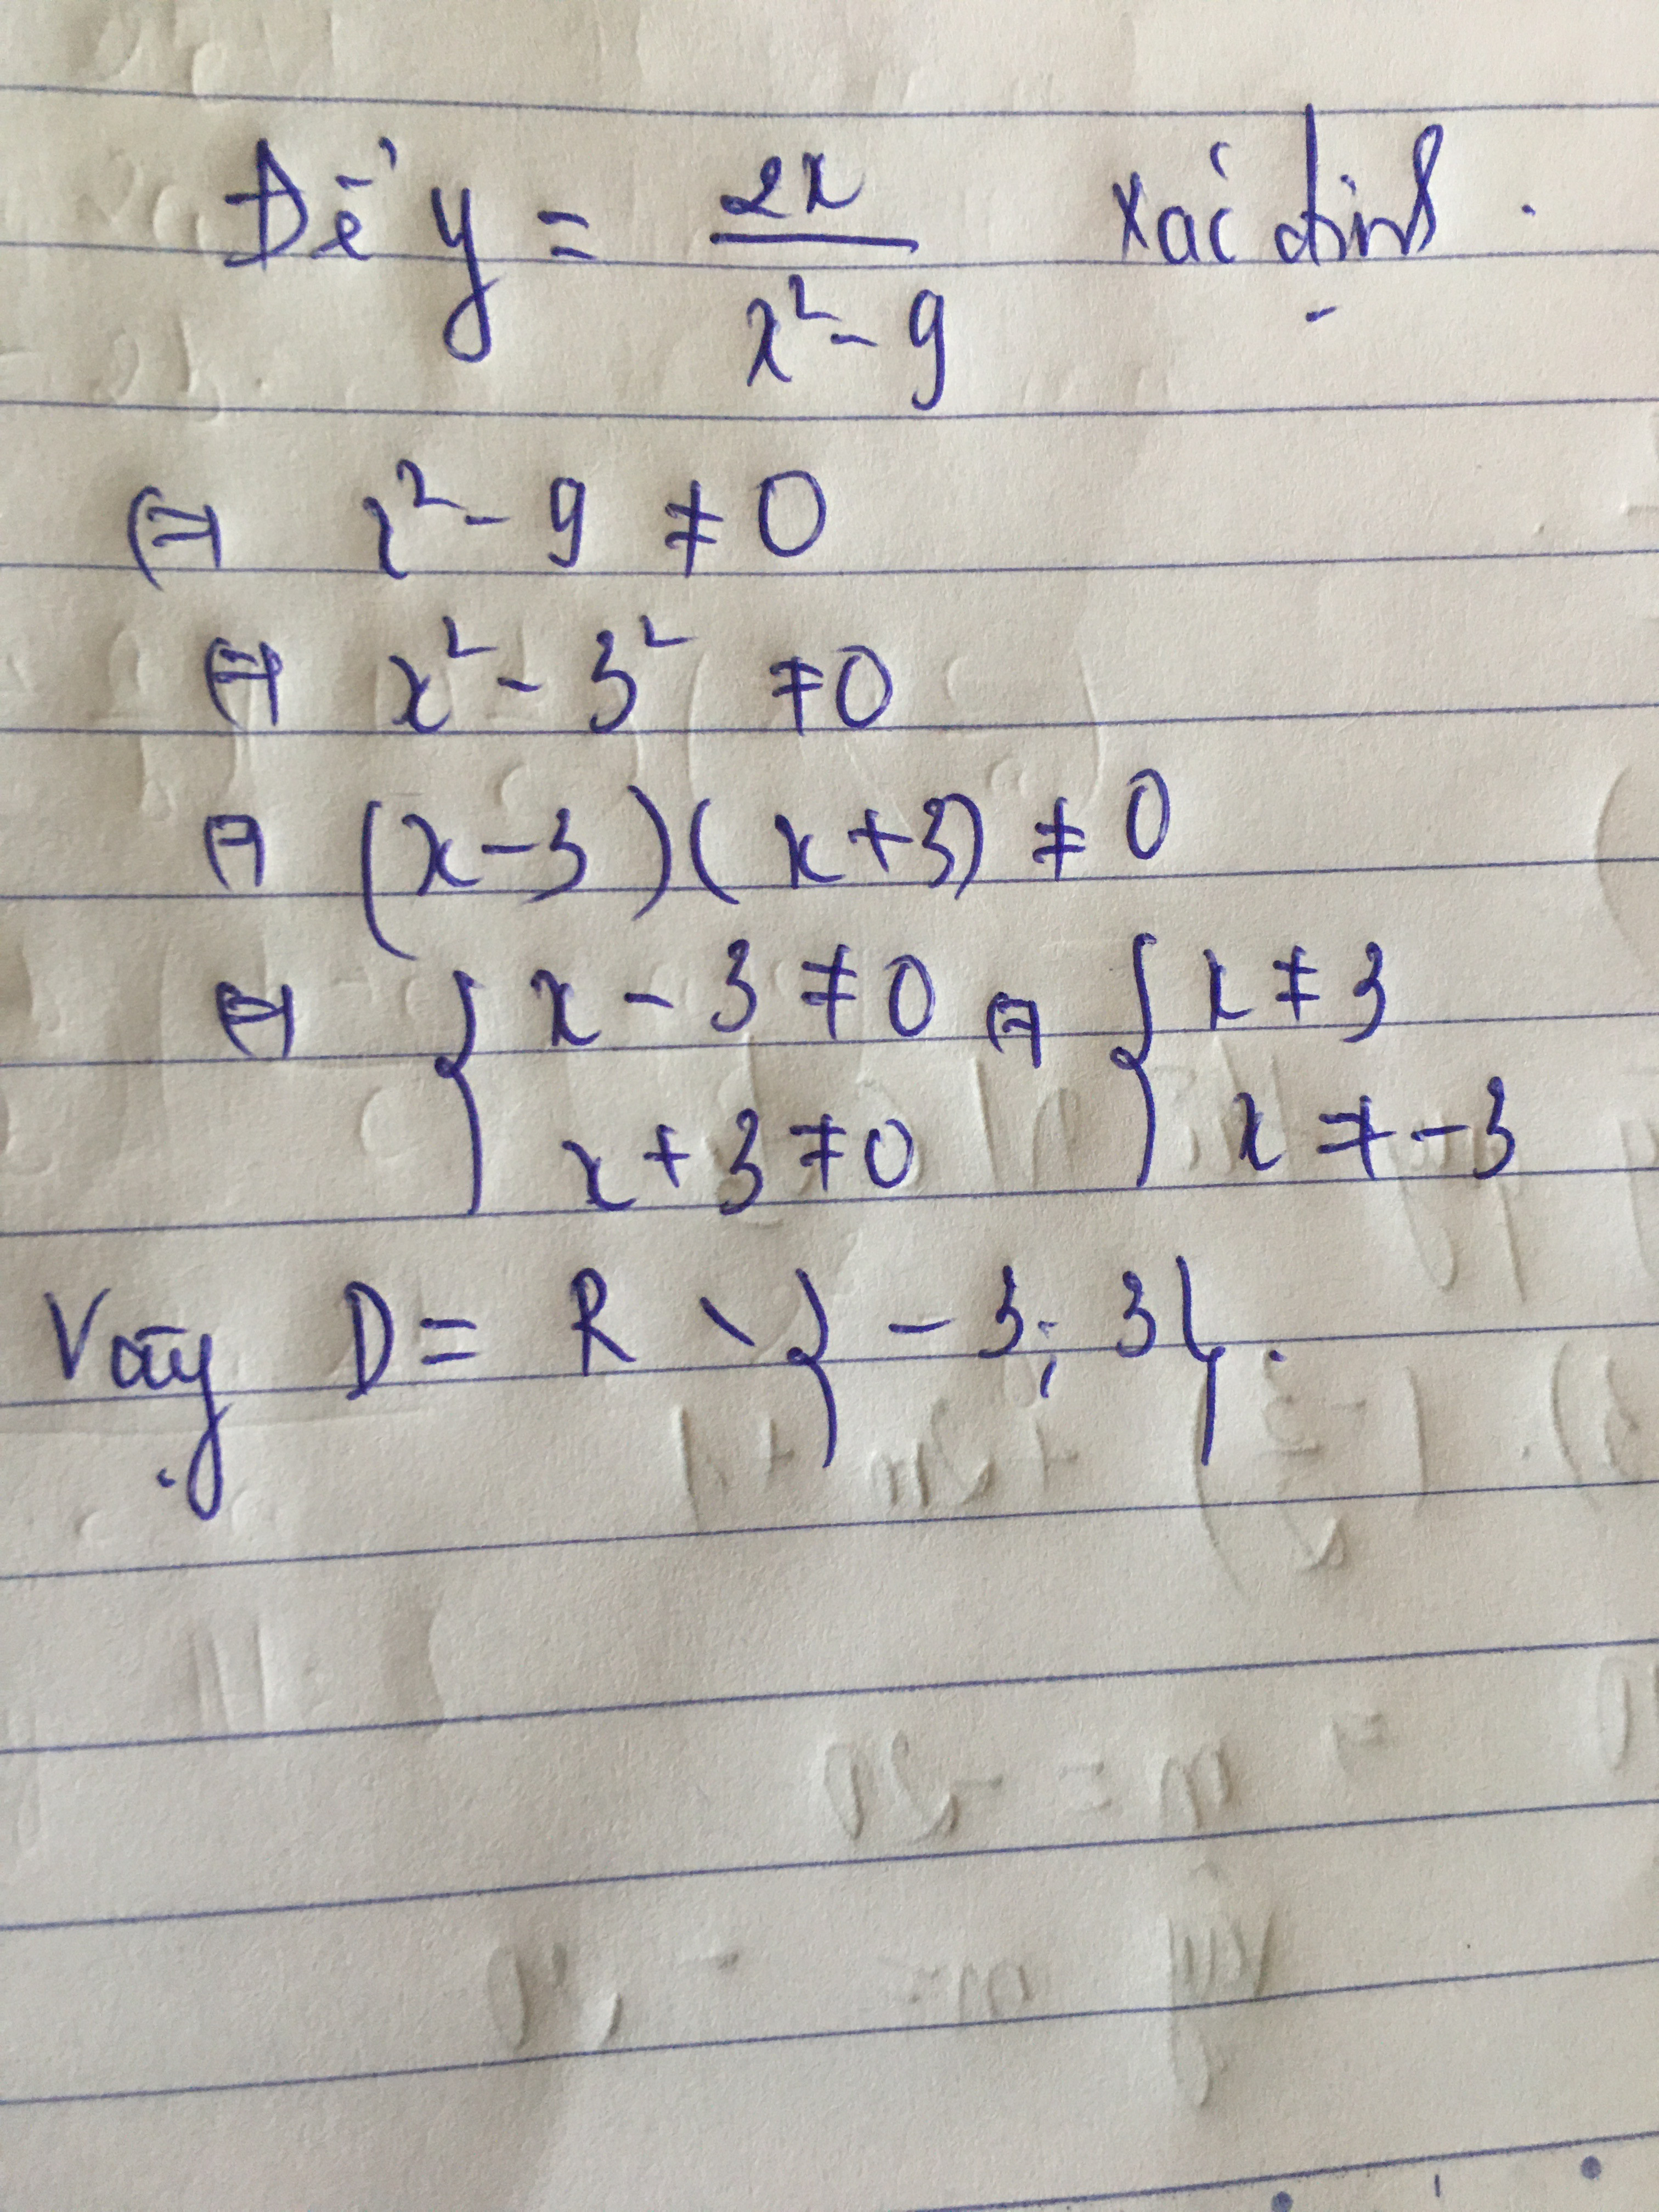 Để y = \frac{2x}{x² - 9} xác định.
⇔ x² - 9 ≠ 0
⇔ x² - 3² ≠ 0
⇔ (x - 3)(x + 3) ≠ 0
⇔ { x - 3 ≠ 0 ⇔ { x ≠ 3
x + 3 ≠ 0 x ≠ -3
Vậy D = R \ }-3; 3{.